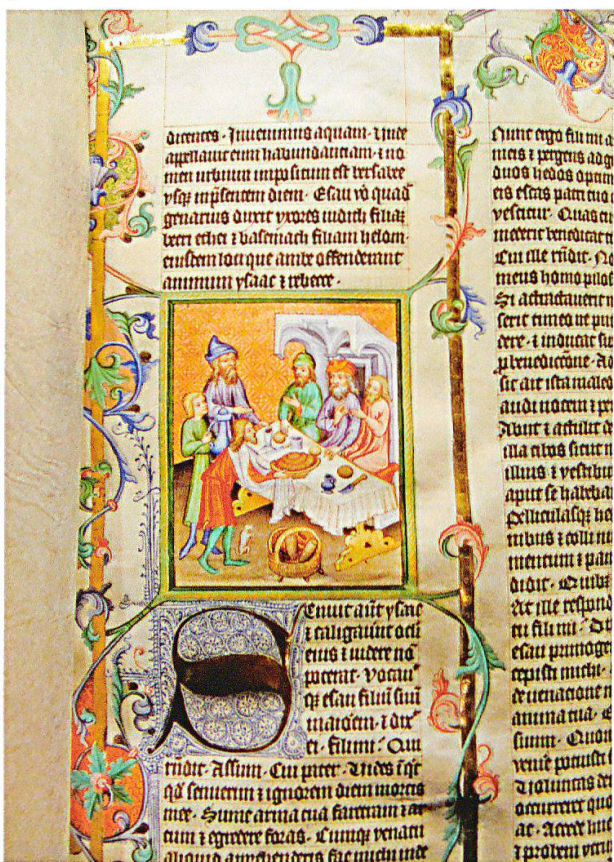 dicentes · Inuenimus aquam · ⁊ inde
appellauit eum habundātiam · ⁊ no
men urbi impositum est bersabee
vsqȝ in p̄sentem diem · Esau v̊o quad
genarius duxit vxores iudith filiā
beeri ethei ⁊ basemach filiam helom
eiusdem loci que ambe offenderant
animum ysaac ⁊ rebecce ·
Senuit aūt ysaac
⁊ caligauūt oculi
eius ⁊ uidere nō
poterat · Vocauit
qȝ esau filiū suū
maiorem · ⁊ dixit
ei · fili mi · Qui
rn̄dit · Assum · Cui pater · Vides īqt
qd̄ senuerim ⁊ ignorem diem mortis
mee · Sume arma tua faretram ⁊ ar
cum ⁊ egredere foras · Cumqȝ uenatu
aliquid apprehenderis fac michi inde
Nunc ergo fili mi a
meis ⁊ pergens ad g
duos hedos optim
eis escas patri tuo
vescitur · Quas cū
Cui ille rn̄dit · No
meus homo pilo
Si attractauerit m
serit timeo ne put
dere · ⁊ inducat su
p̄ benedictōne · Ad
sit ait ista maled
audi uocem ⁊ p
Abiit ⁊ attulit d
illa cibos sicut n
illius ⁊ vestibus
aput se habebat
Pelliculasqȝ he
⁊ colli nu
mentum ⁊ pan
didit · Quibȝ
At ille respon
tu fili mi · Di
esau primoge
cepisti michi ·
de uenatione m
anima tua · E
suum · Quom
uenire potuisti
D̄i uoluntas
occurreret quo
ac · Accede huc
⁊ probem utru